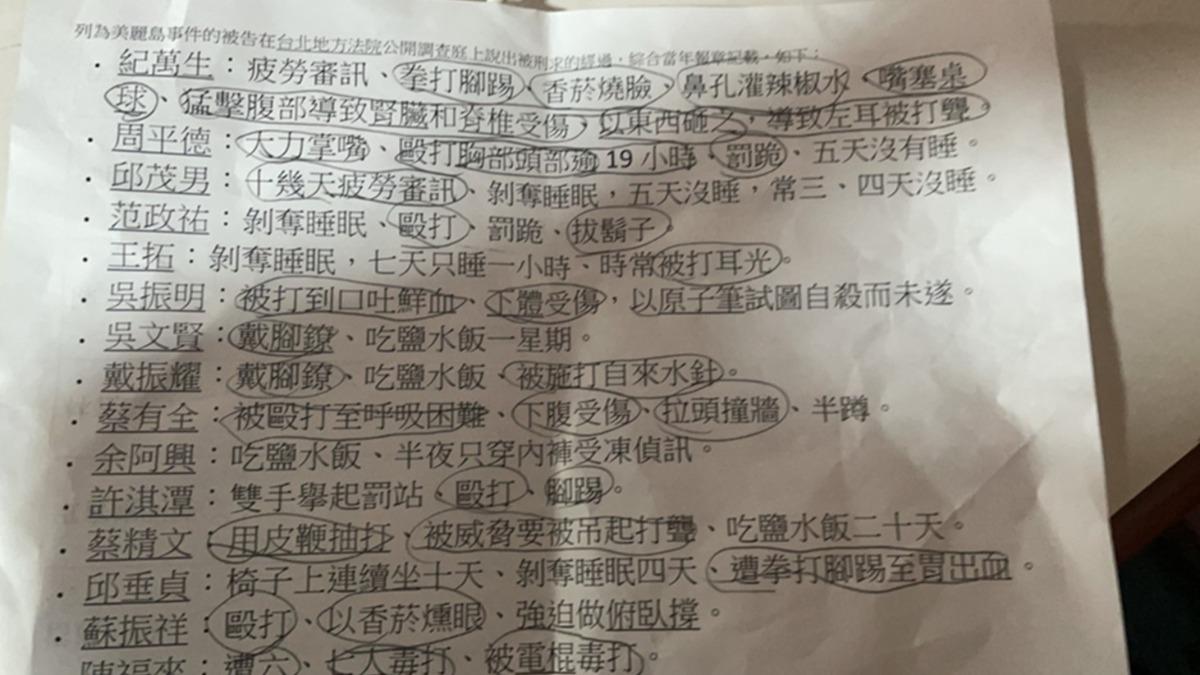 列為美麗島事件的被告在台北地方法院公開調查庭上說出被刑求的經過，綜合當年報章記載，如下：
• 紀萬生：疲勞審訊、拳打腳踢、香菸燒臉、鼻孔灌辣椒水、嘴塞桌
球、猛擊腹部導致腎臟和脊椎受傷，以東西砸之，導致左耳被打聾。
• 周平德：大力掌嘴、毆打胸部頭部逾 19 小時、罰跪、五天沒有睡。
• 邱茂男：十幾天疲勞審訊、剝奪睡眠，五天沒睡，常三、四天沒睡。
• 范政祐：剝奪睡眠、毆打、罰跪、拔鬍子。
• 王拓：剝奪睡眠，七天只睡一小時、時常被打耳光。
• 吳振明：被打到口吐鮮血、下體受傷，以原子筆試圖自殺而未遂。
• 吳文賢：戴腳鐐、吃鹽水飯一星期。
• 戴振耀：戴腳鐐、吃鹽水飯、被施打自來水針。
• 蔡有全：被毆打至呼吸困難、下腹受傷、拉頭撞牆、半蹲。
• 余阿興：吃鹽水飯、半夜只穿內褲受凍偵訊。
• 許淇潭：雙手舉起罰站、毆打、腳踢。
• 蔡精文：用皮鞭抽打、被威脅要被吊起打聾、吃鹽水飯二十天。
• 邱垂貞：椅子上連續坐十天、剝奪睡眠四天、遭拳打腳踢至胃出血。
• 蘇振祥：毆打、以香菸燻眼、強迫做俯臥撐。
陳福來：遭六、七人毒打、被電棍毒打。